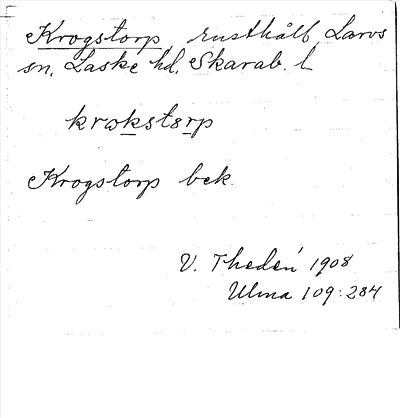 Krogstorp, rusthåll Larvs
sn, Laske hd, Skarab. l
krokstorp
Krogstorp bek.
V. Thedén 1908
Ulma 109:284